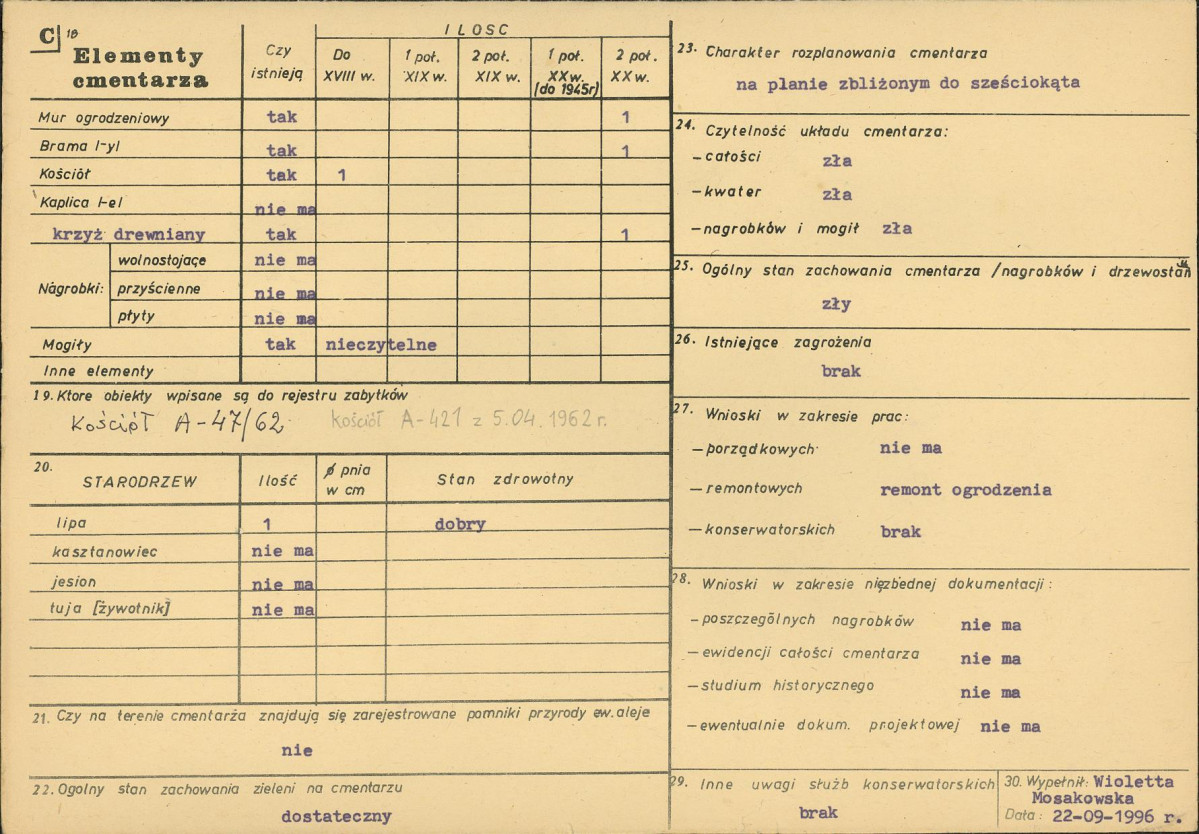 C 18
Elementy cmentarza
Czy istnieją
ILOSC
Do XVIII w.
1 poł. XIX w.
2 poł. XIX w.
1 poł. XX w. (do 1945r)
2 poł. XX w.
Mur ogrodzeniowy tak 1
Brama l-yl tak 1
Kościół tak 1
Kaplica l-el nie ma
krzyż drewniany tak 1
Nagrobki: wolnostojące nie ma
przyścienne nie ma
płyty nie ma
Mogiły tak nieczytelne
Inne elementy
19. Ktore obiekty wpisane są do rejestru zabytków
Kościół A-47/62 Kościół A-421 z 5.04.1962 r.
20. STARODRZEW Ilość ϕ pnia w cm Stan zdrowotny
lipa 1 dobry
kasztanowiec nie ma
jesion nie ma
tuja [żywotnik] nie ma
21. Czy na terenie cmentarza znajdują się zarejestrowane pomniki przyrody ew. aleje
nie
22. Ogolny stan zachowania zieleni na cmentarzu
dostateczny
23. Charakter rozplanowania cmentarza
na planie zbliżonym do sześciokąta
24. Czytelność układu cmentarza:
- całości zła
- kwater zła
- nagrobków i mogił zła
25. Ogólny stan zachowania cmentarza /nagrobków i drzewostan
zły
26. Istniejące zagrożenia
brak
27. Wnioski w zakresie prac:
- porządkowych nie ma
- remontowych remont ogrodzenia
- konserwatorskich brak
28. Wnioski w zakresie niezbędnej dokumentacji:
- poszczególnych nagrobków nie ma
- ewidencji całości cmentarza nie ma
- studium historycznego nie ma
- ewentualnie dokum. projektowej nie ma
29. Inne uwagi służb konserwatorskich
brak
30. Wypełnił: Wioletta
Mosakowska
Data: 22-09-1996 r.